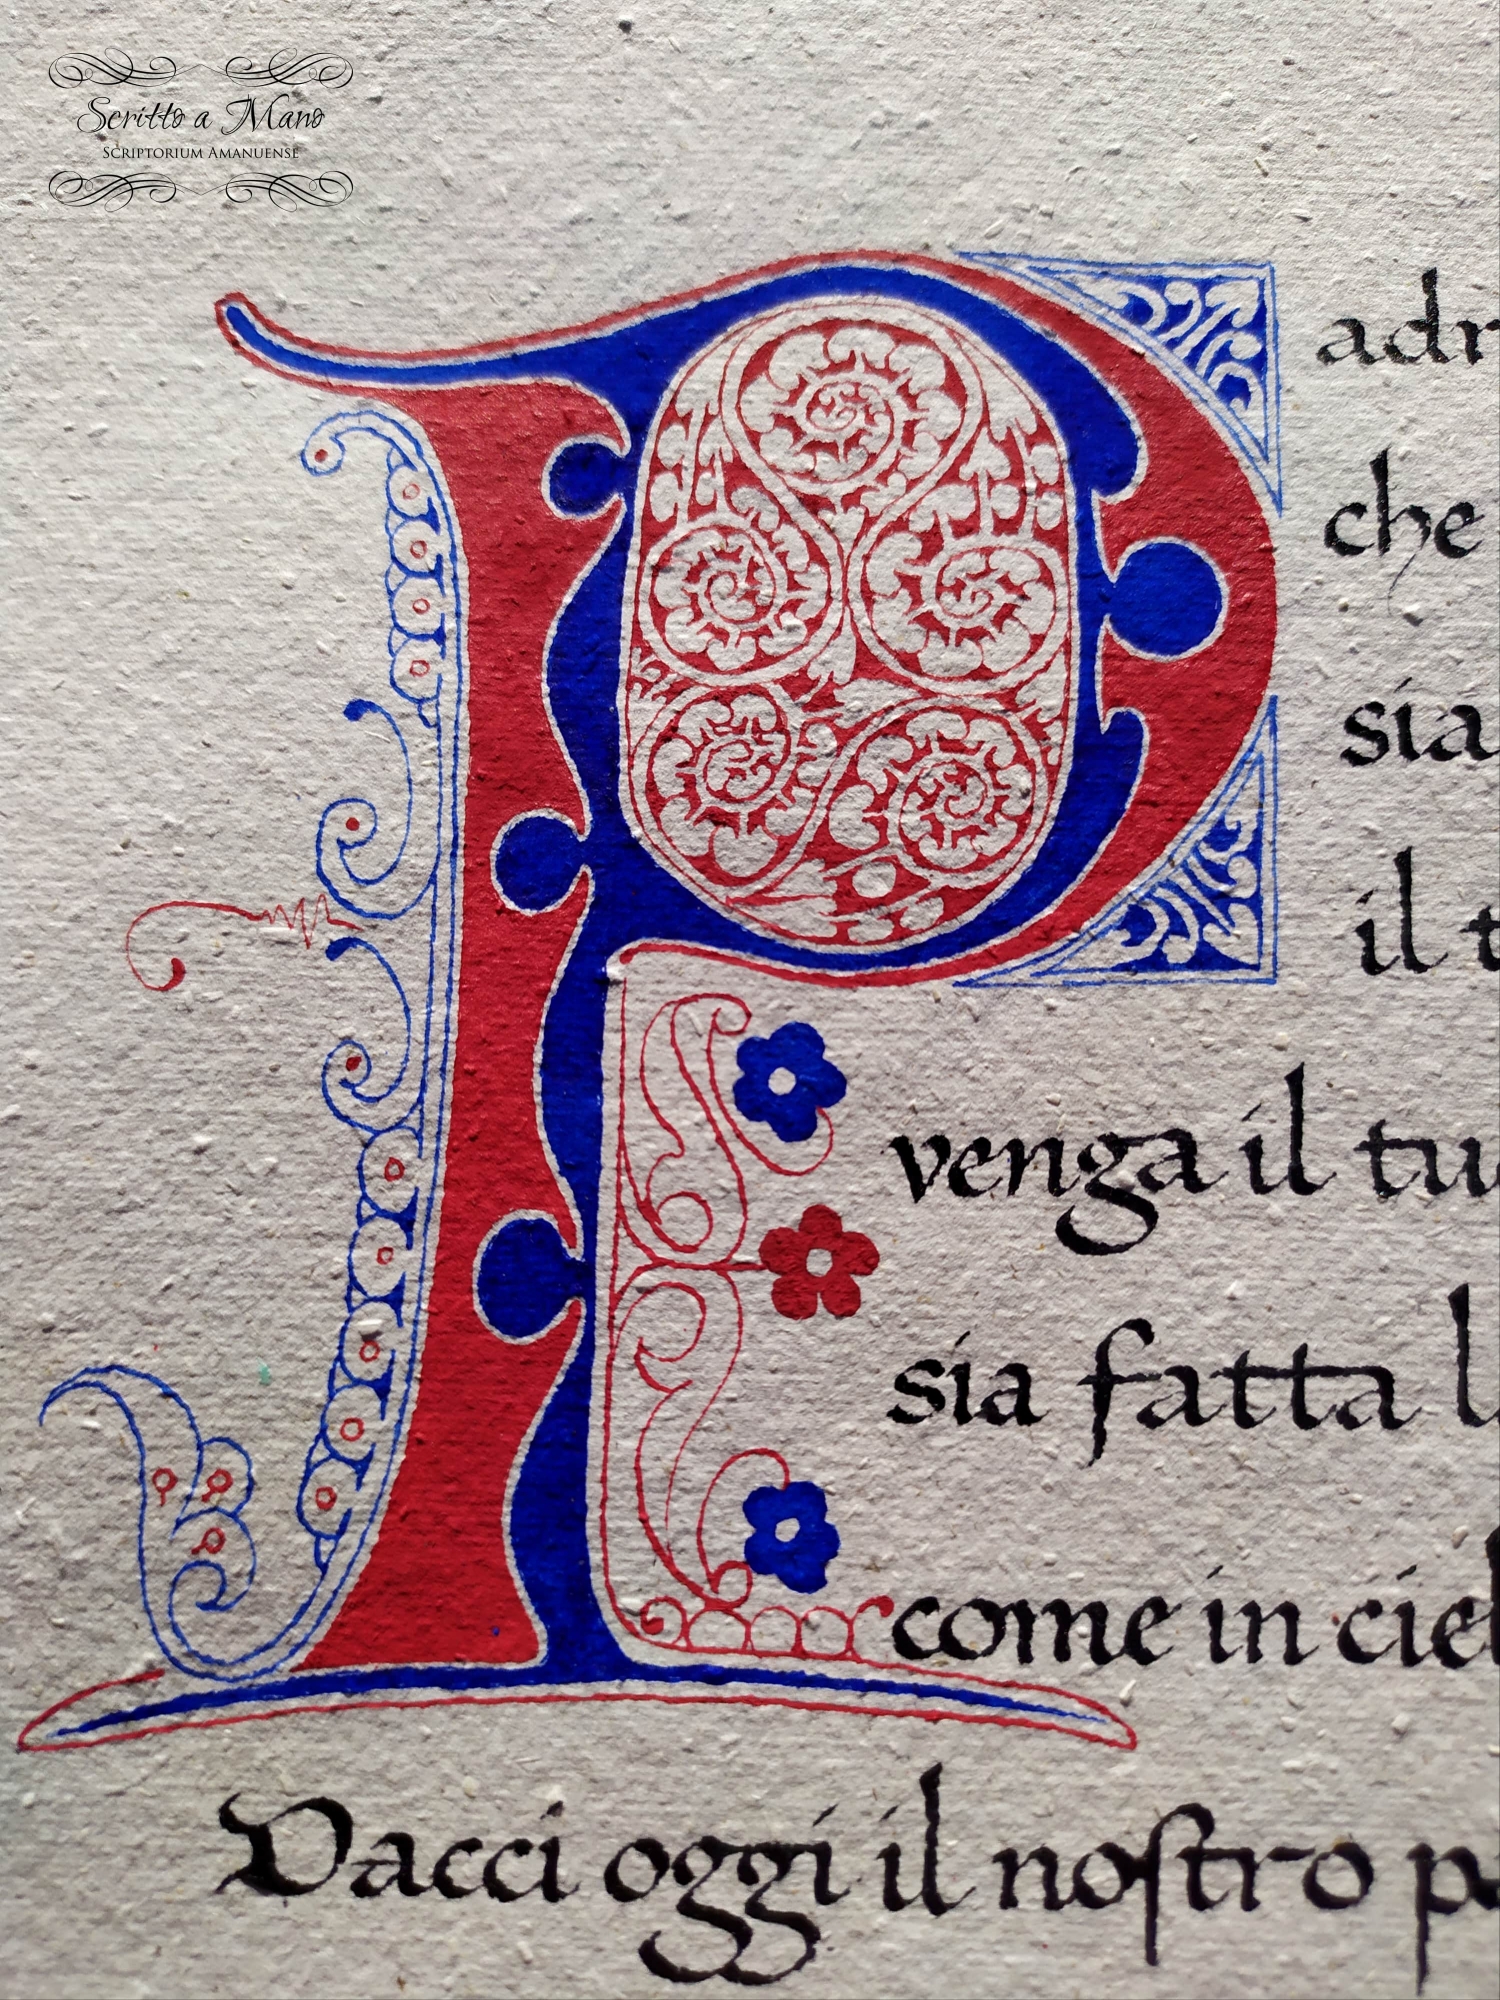 Scritto a Mano
SCRIPTORIUM AMANUENSE
Padr
che
sia
il t
venga il tu
sia fatta l
come in ciel
Dacci oggi il noſtro p